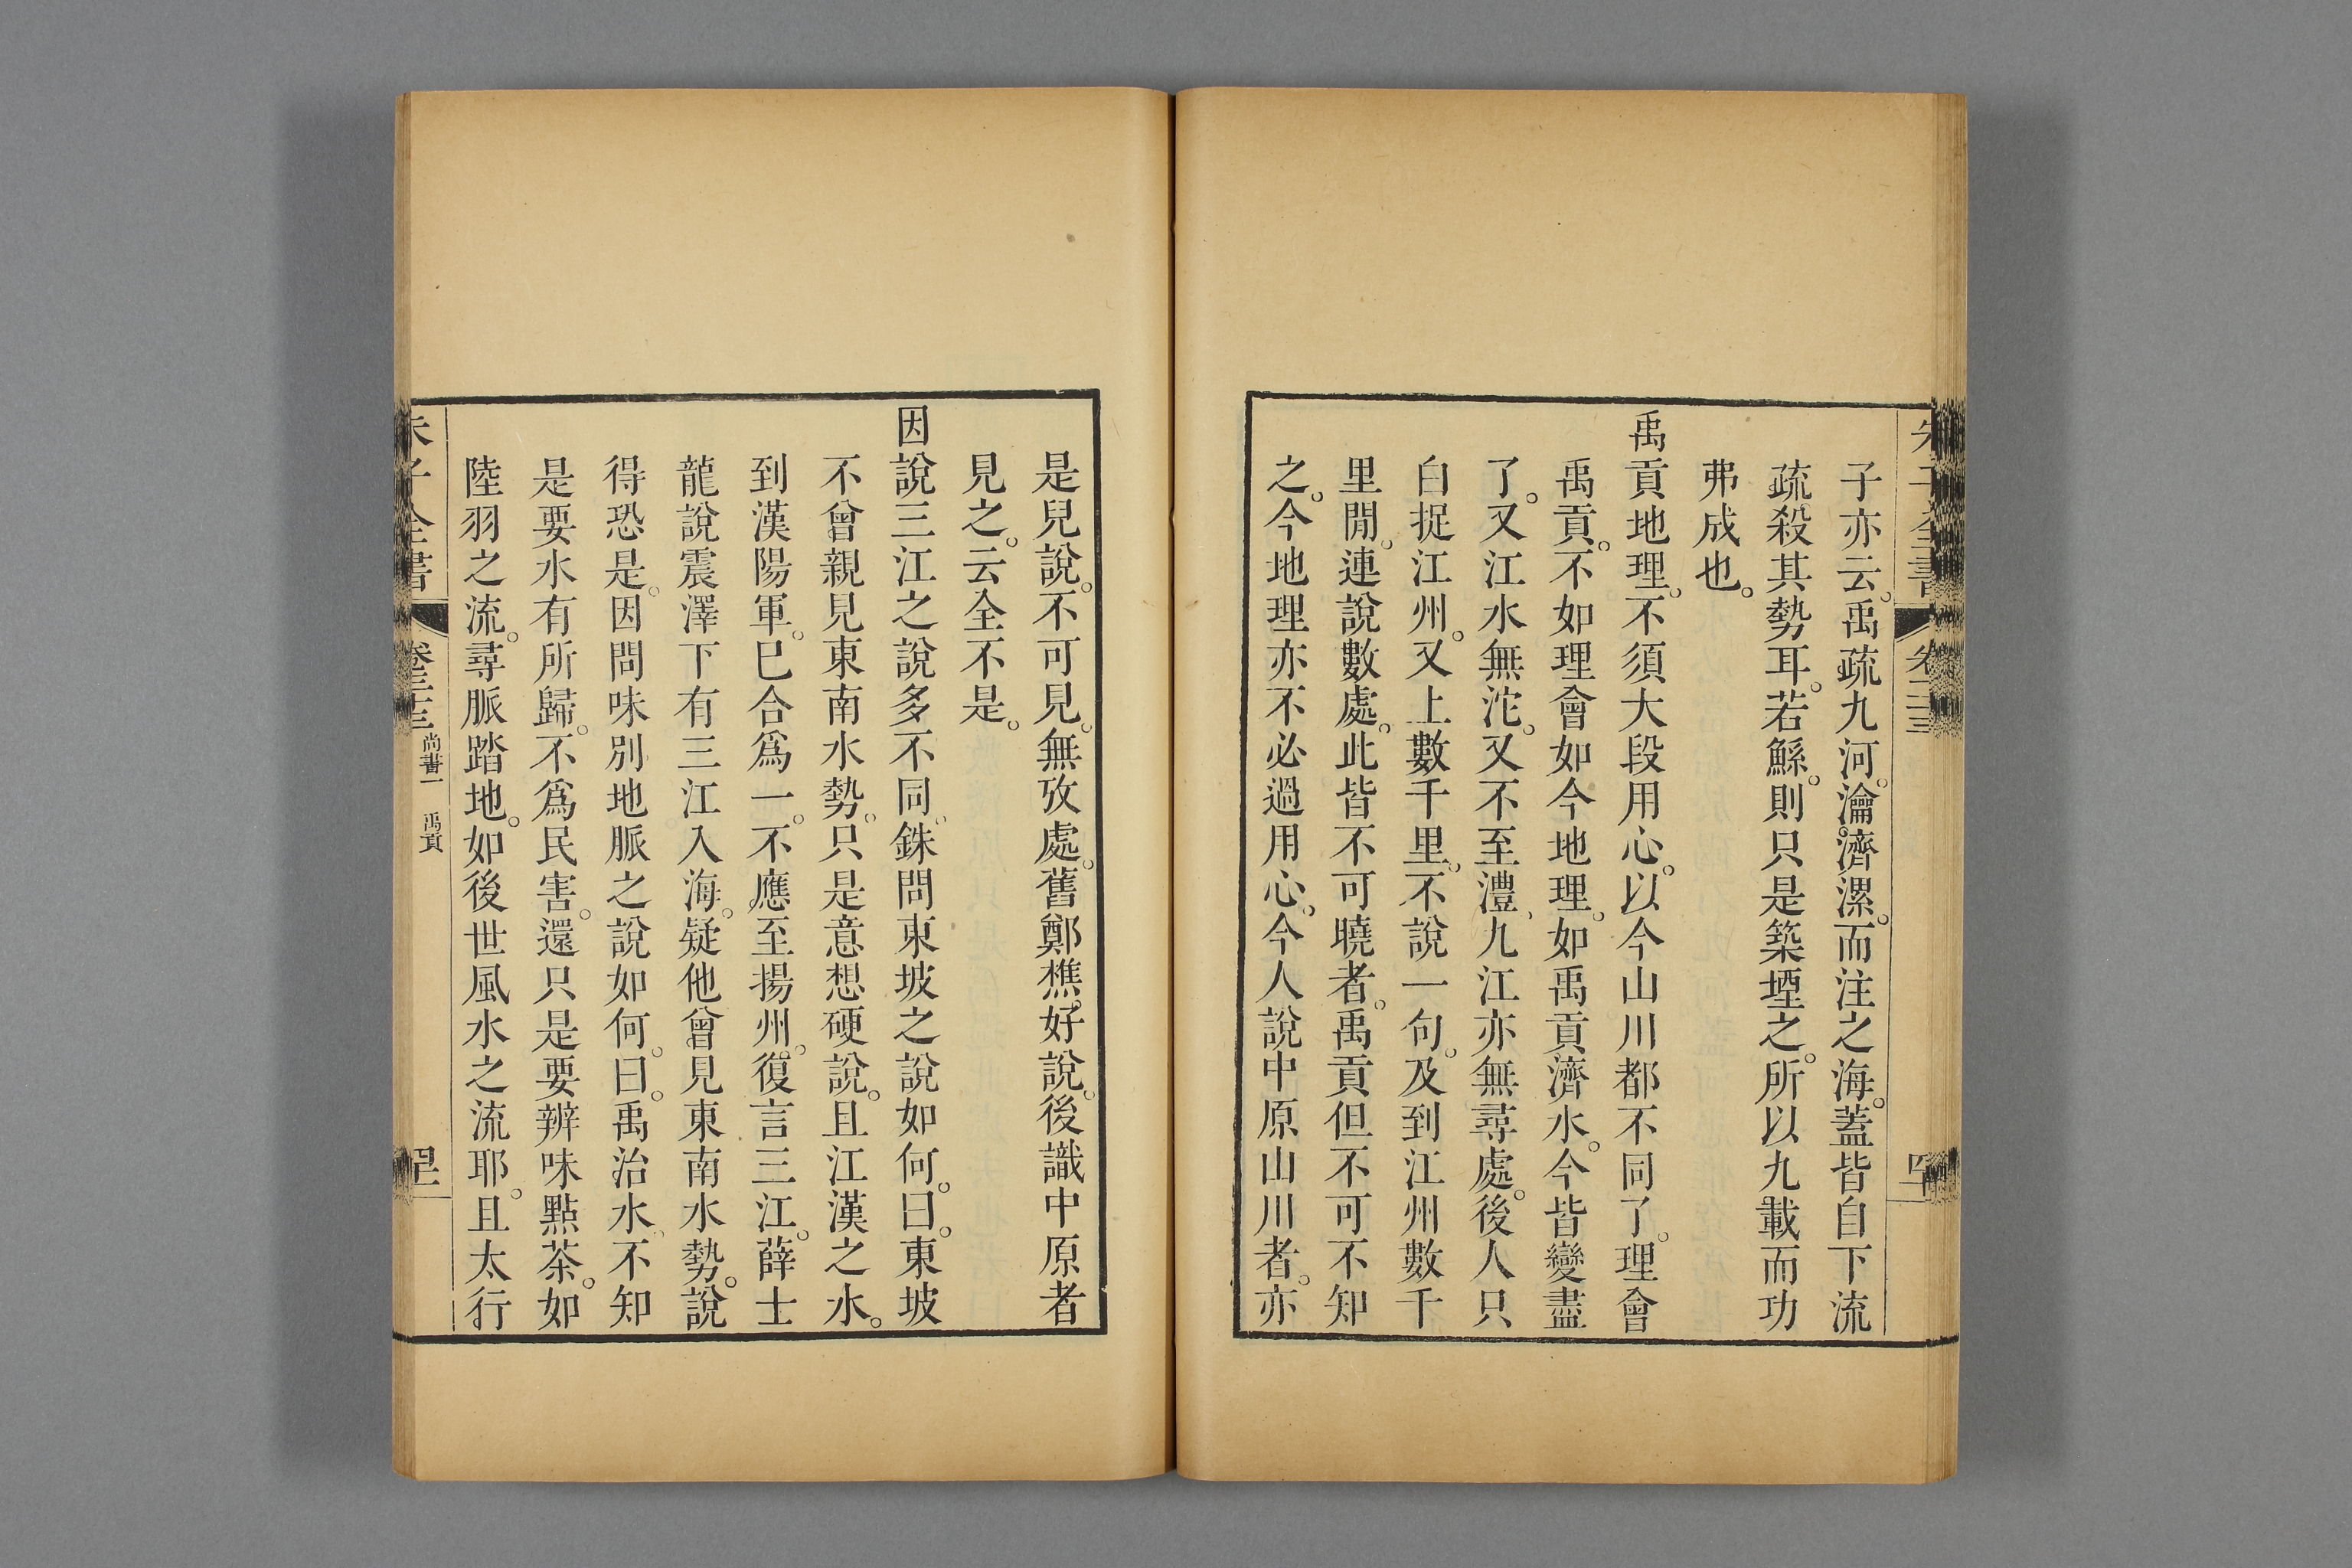 子亦云。禹疏九河。瀹濟漯。而注之海。蓋皆自下流
疏殺其勢耳。若鯀。則只是築堙之。所以九載而功
弗成也。
禹貢地理。不須大段用心。以今山川都不同了。理會
禹貢。不如理會如今地理。如禹貢濟水。今皆變盡
了。又江水無沱。又不至澧、九江亦無尋處。後人只
白捉江州。又上數千里。不說一句。及到江州數千
里閒。連說數處。此皆不可曉者。禹貢但不可不知
之。今地理亦不必過用心。今人說中原山川者。亦
是兒說。不可見。無攷處。舊鄭樵。好說。後識中原者
見之。云全不是。
因說三江之說多不同。銖問東坡之說如何。曰。東坡
不曾親見東南水勢。只是意想硬說。且江漢之水。
到漢陽軍。已合爲一。不應至揚州。復言三江。薛士
龍說震澤下有三江入海。疑他曾見東南水勢。說
得恐是。因問味別地脈之說如何。曰。禹治水。不知
是要水有所歸。不爲民害。還只是要辨味點茶。如
陸羽之流。尋脈踏地。如後世風水之流耶。且太行
朱子全書
卷三十三
尚書一 禹貢